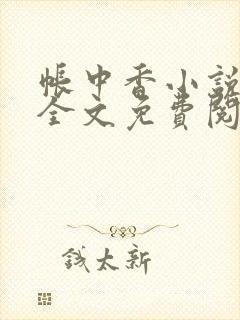 帳中香小説
全文免費閱
錢太新